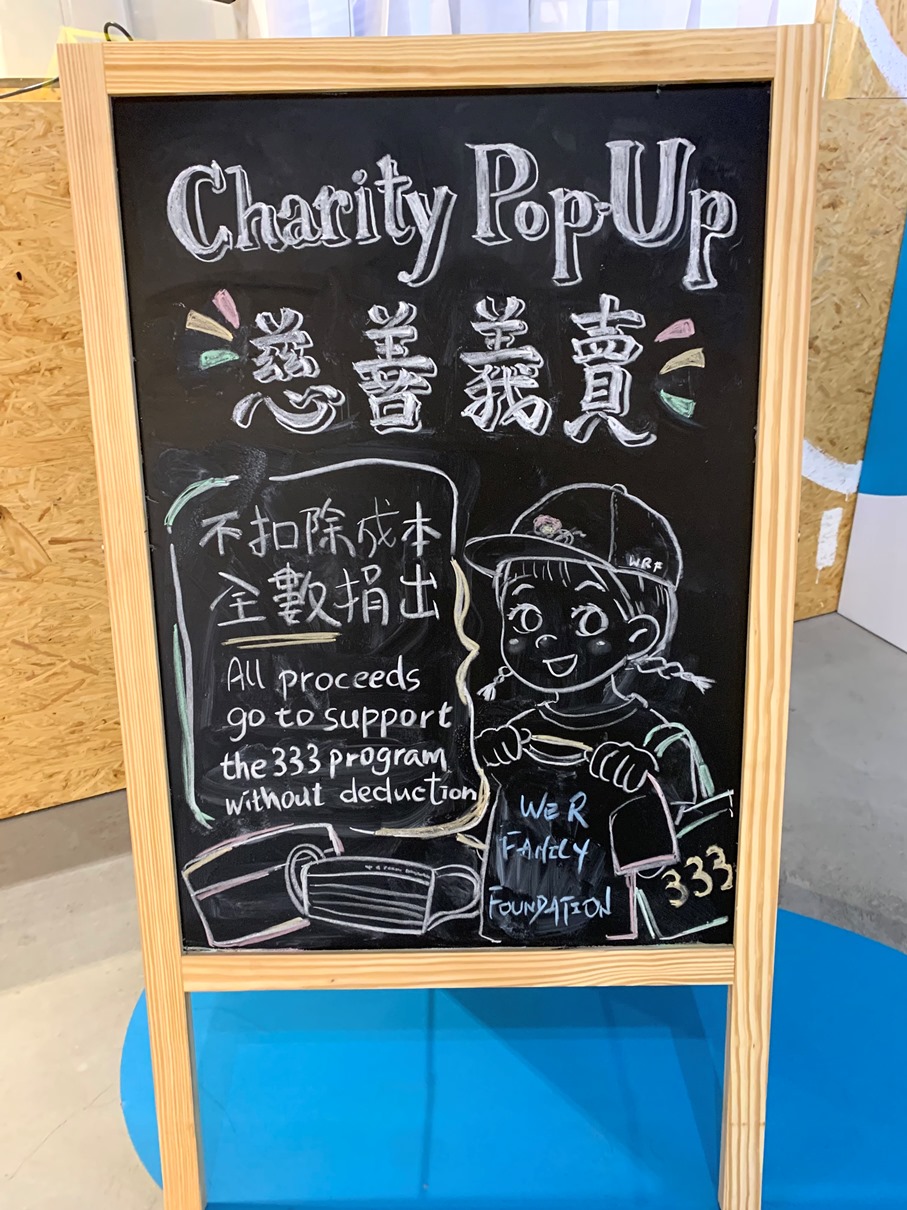 Charity Pop-Up
慈善義賣
不扣除成本
全數捐出
All proceeds
go to support
the 333 program
without deduction
WRF
WE R
FAMILY
FOUNDATION
333